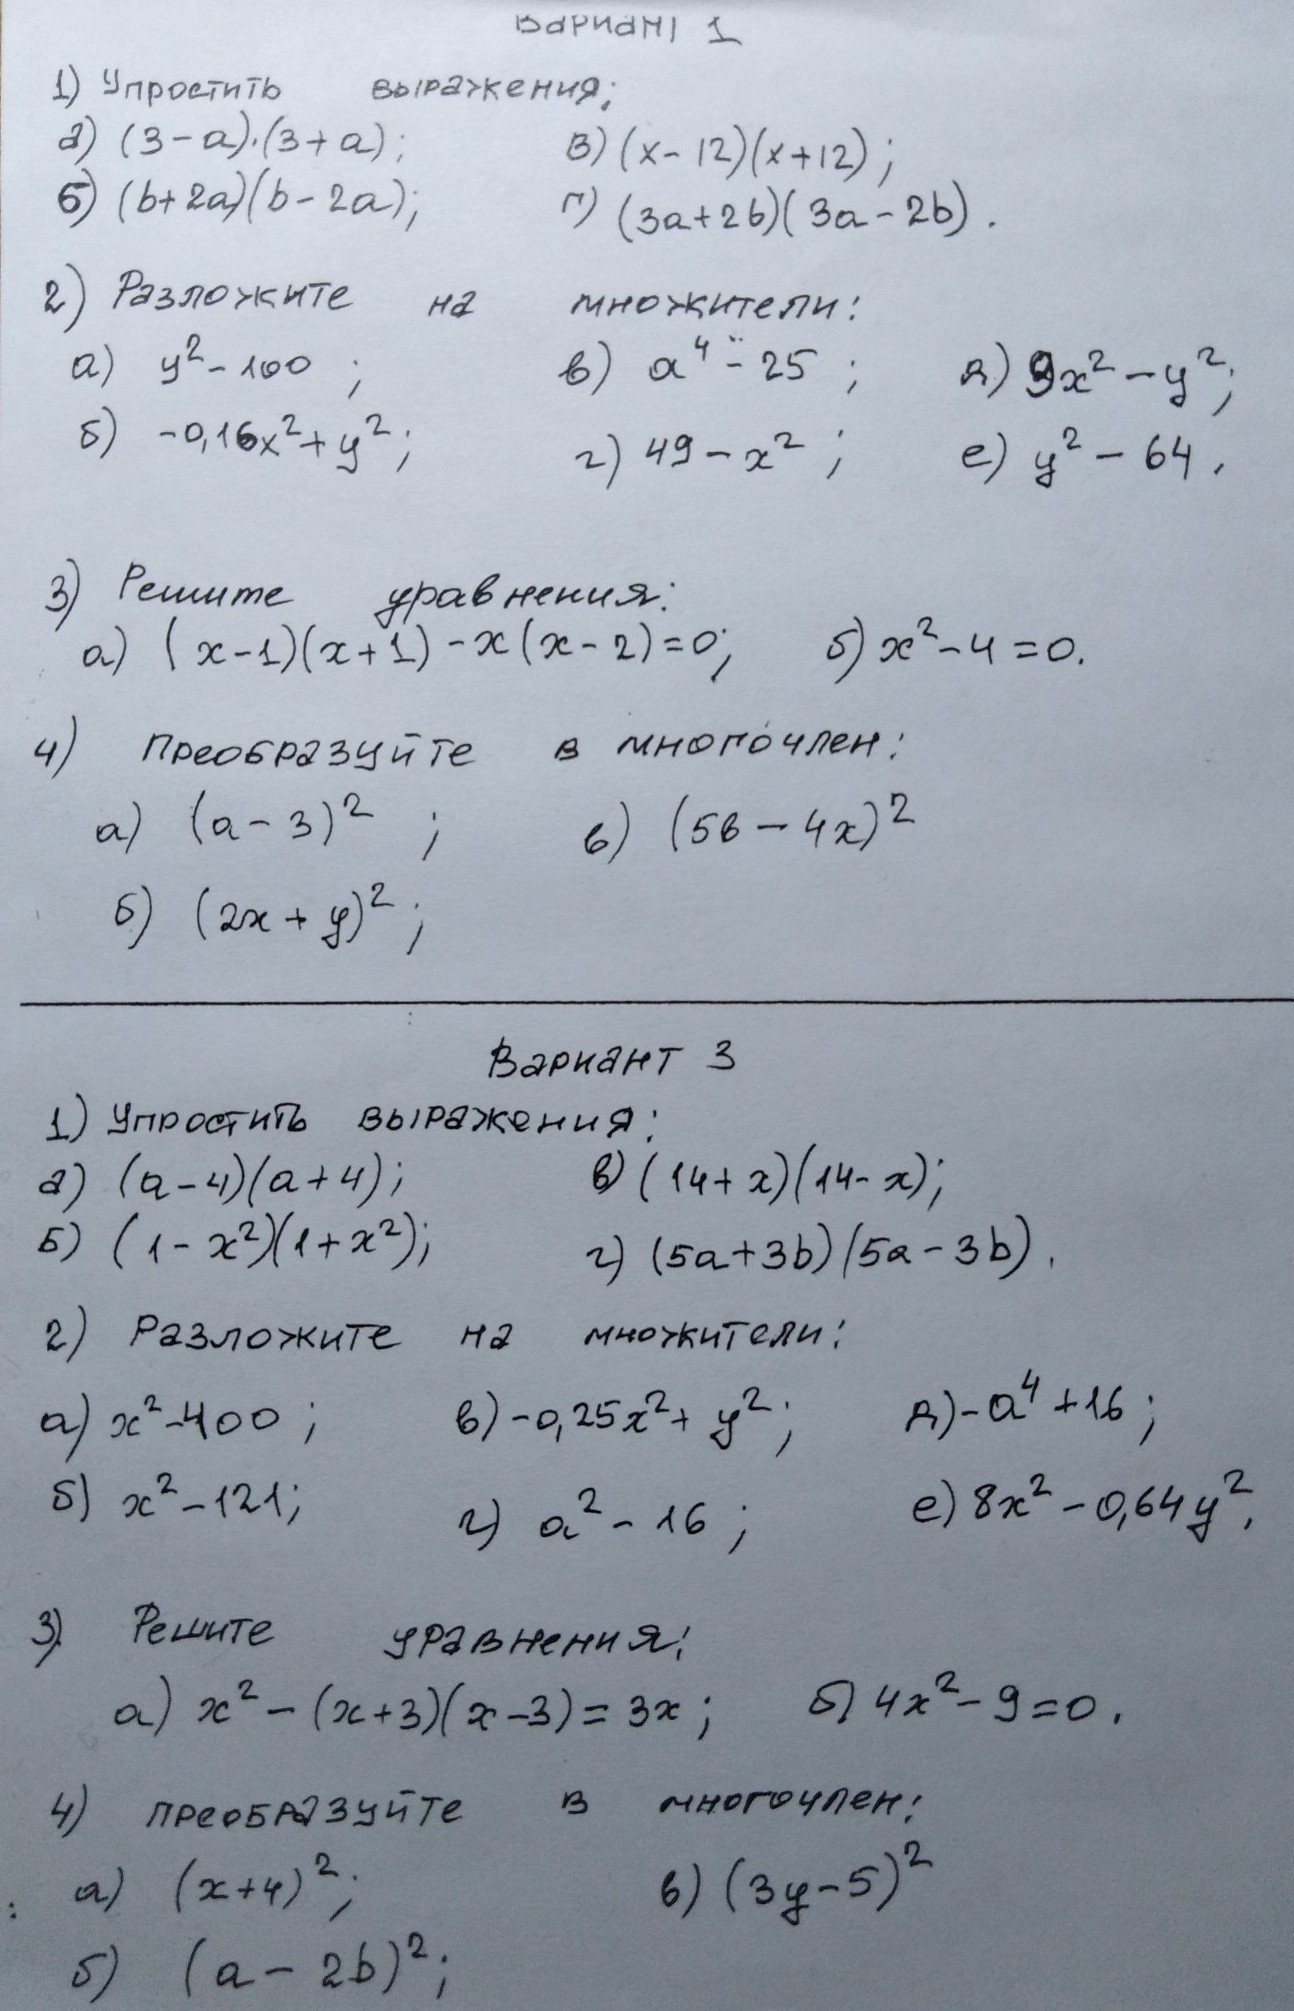 Вариант 1
1) Упростить выражения;
а) (3-a)·(3+a); в) (x-12)(x+12);
б) (b+2a)(b-2a); г) (3a+2b)(3a-2b).
2) Разложите на множители:
а) y²-100; в) a⁴-25; д) 9x²-y²;
б) -0,16x²+y²; г) 49-x²; е) y²-64.
3) Решите уравнения:
а) (x-1)(x+1)-x(x-2)=0; б) x²-4=0.
4) преобразуйте в многочлен:
а) (a-3)²; в) (5в-4x)²
б) (2x+y)²;
Вариант 3
1) Упростить выражения:
а) (a-4)(a+4); в) (14+x)(14-x);
б) (1-x²)(1+x²); г) (5a+3b)(5a-3b).
2) Разложите на множители:
а) x²-400; в) -0,25x²+y²; д) -a⁴+16;
б) x²-121; г) a²-16; е) 8x²-0,64y².
3) Решите уравнения:
а) x²-(x+3)(x-3)=3x; б) 4x²-9=0.
4) преобразуйте в многочлен:
а) (x+4)²; в) (3y-5)²
б) (a-2b)²;